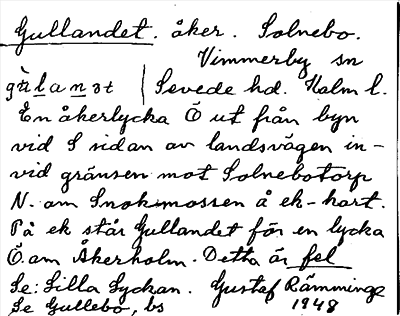 Gullandet. åker. Solnebo.
Vimmerby sn
Sevede hd. Kalm l.
En åkerlycka Ö ut från byn
vid S sidan av landsvägen in-
vid gränsen mot Solnebotorp
N. om Snokmossen å ek-kart.
På ek står Gullandet för en lycka
Ö. om Åkerholm. Detta är fel
Se: Lilla Lyckan. Gustaf Rämminge
Se Gullebo, bs 1948